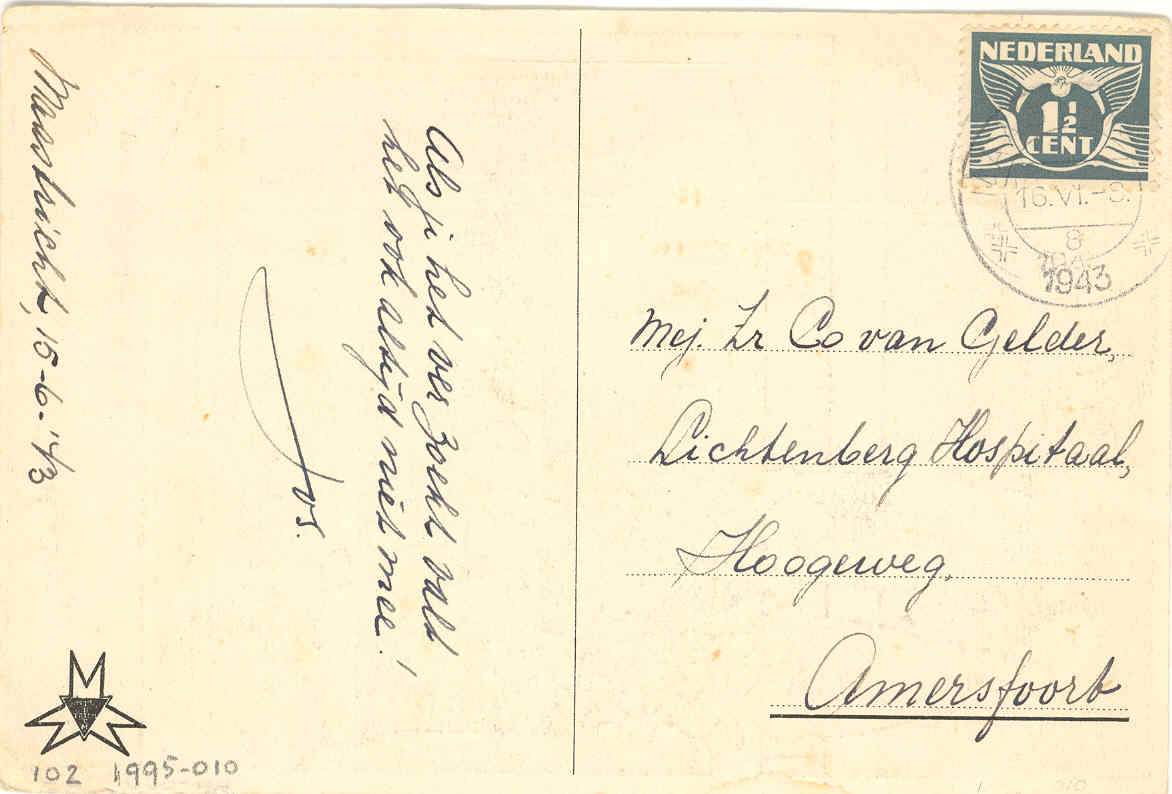 Maastricht, 15-6-'43
Als je het ver zoekt valt
het ook altijd niet mee!
Jos.
NEDERLAND
1½
CENT
16.VI.-8.
8
1943
Mej. Zr Co van Gelder,
Lichtenberg Hospitaal,
Hoogeweg,
Amersfoort
102 1995-010